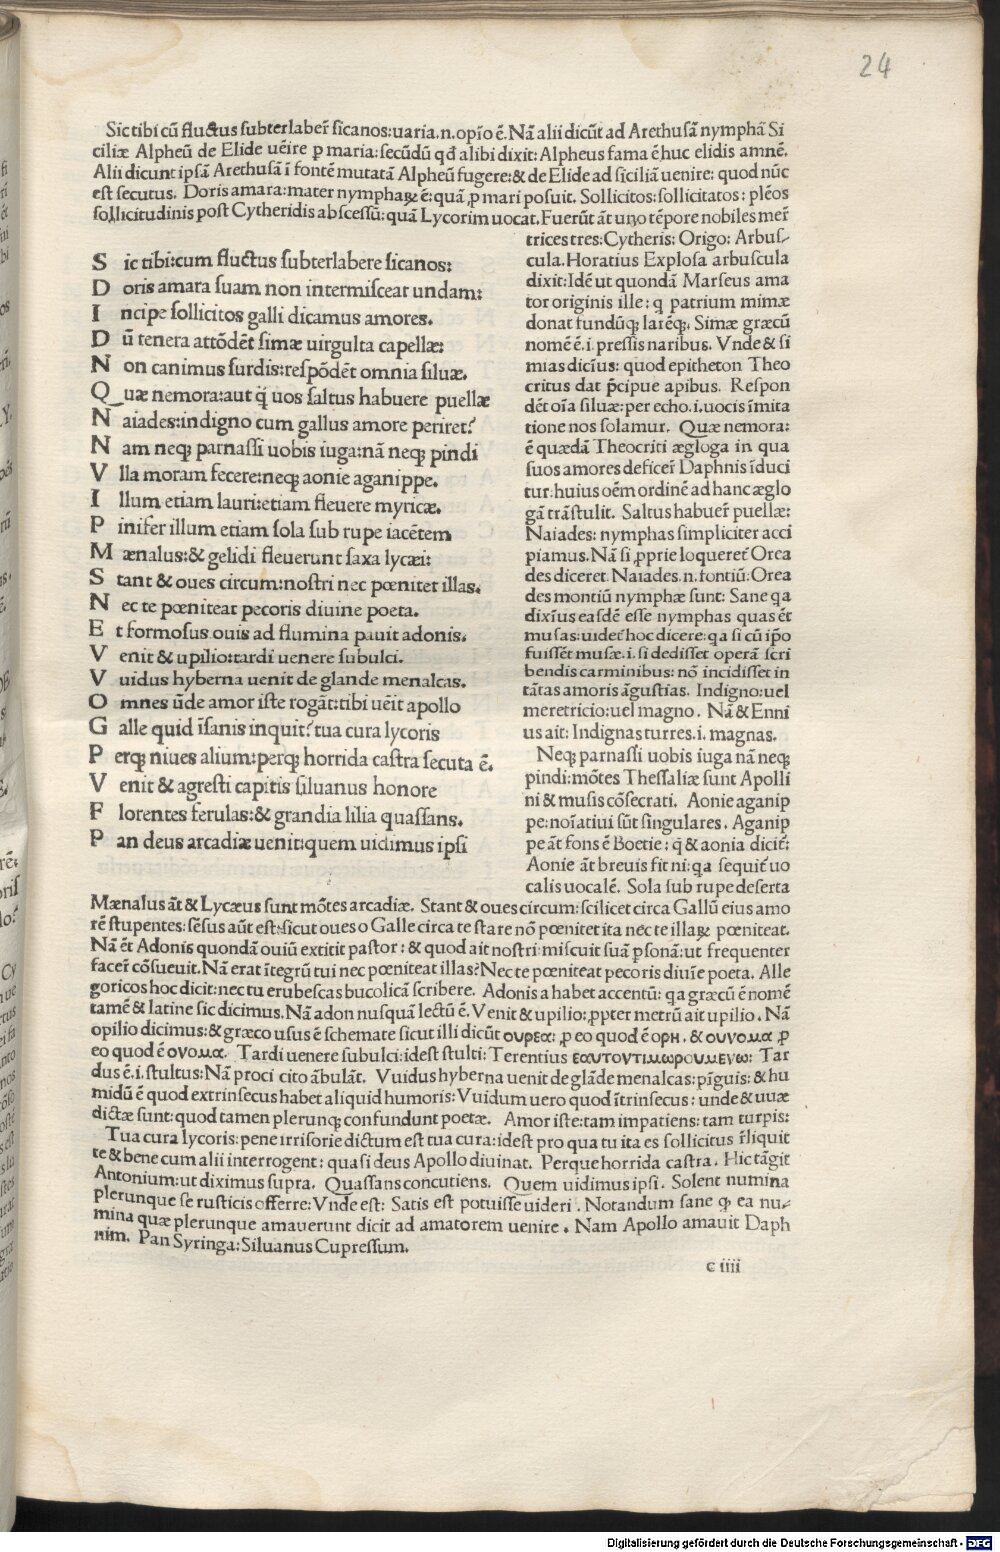 24
Sic tibi cū fluctus subterlaber̄ sicanos: uaria.n.opīo ē. Nā alii dicūt ad Arethusā nymphā Si
ciliæ Alpheū de Elide uēire ꝑ maria: secūdū qđ alibi dixit: Alpheus fama ē huc elidis amnē.
Alii dicunt ipsā Arethusā ī fontē mutatā Alpheū fugere: & de Elide ad siciliā uenire: quod nūc
est secutus. Doris amara: mater nymphaꝝ ē: quā ꝓ mari posuit. Sollicitos: sollicitatos: plēos
sollicitudinis post Cytheridis abscessū: quā Lycorim uocat. Fuerūt āt uno tēpore nobiles mer̄
trices tres: Cytheris: Origo: Arbus-
cula. Horatius Explosa arbuscula
dixit: Idē ut quondā Marseus ama
tor originis ille: q patrium mimæ
donat fundūqꝫ larēqꝫ. Simæ græcū
nomē ē.i. pressis naribus. Vnde & si
mias dicīus: quod epitheton Theo
critus dat p̄cipue apibus. Respon
dēt oīa siluæ: per echo.i. uocis īmita
tione nos solamur. Quæ nemora:
ē quædā Theocriti ægloga in qua
suos amores deficer̄ Daphnis īduci
tur: huius oēm ordinē ad hanc æglo
gā trāstulit. Saltus habuer̄ puellæ:
Naiades: nymphas simpliciter acci
piamus. Nā si ꝓprie loqueret̄ Orea
des diceret. Naiades.n. fontiū: Orea
des montiū nymphæ sunt: Sane qa
dixīus easdē esse nymphas quas ēt
musas: uidet̄ hoc dicere: qa si cū ip̄o
fuissēt musæ.i. si dedisset operā scri
bendis carminibus: nō incidisset in
tātas amoris āgustias. Indigno: uel
meretricio: uel magno. Nā & Enni
us ait: Indignas turres.i. magnas.
Neqꝫ parnassi uobis iuga nā neqꝫ
pindi: mōtes Thessaliæ sunt Apolli
ni & musis cōsecrati. Aonie aganip
pe: noīatiui sūt singulares. Aganip
pe āt fons ē Boetie: q̄ & aonia dicit̄:
Aonie āt breuis fit ni: qa sequit̄ uo
calis uocalē. Sola sub rupe deserta
S ic tibi: cum fluctus subterlabere sicanos:
D oris amara suam non intermisceat undam:
I ncipe sollicitos galli dicamus amores.
D ū tenera attōdēt simæ uirgulta capellæ:
N on canimus surdis: respōdēt omnia siluæ.
Q uæ nemora: aut q̄ uos saltus habuere puellæ
N aiades: indigno cum gallus amore periret?
N am neqꝫ parnassi uobis iuga: nā neqꝫ pindi
V lla moram fecere: neqꝫ aonie aganippe.
I llum etiam lauri: etiam fleuere myricæ.
P inifer illum etiam sola sub rupe iacētem
M ænalus: & gelidi fleuerunt saxa lycæi:
S tant & oues circum: nostri nec pœnitet illas.
N ec te pœniteat pecoris diuine poeta.
E t formosus ouis ad flumina pauit adonis.
V enit & upilio: tardi uenere subulci.
V uidus hyberna uenit de glande menalcas.
O mnes ūde amor iste rogāt: tibi uēit apollo
G alle quid īsanis inquit? tua cura lycoris
P erqꝫ niues alium: perqꝫ horrida castra secuta ē.
V enit & agresti capitis siluanus honore
F lorentes ferulas: & grandia lilia quassans.
P an deus arcadiæ uenit: quem uidimus ipsi
Mænalus āt & Lycæus sunt mōtes arcadiæ. Stant & oues circum: scilicet circa Gallū eius amo
rē stupentes: sēsus aūt est: sicut oues o Galle circa te stare nō pœnitet ita nec te illaꝝ pœniteat.
Nā ēt Adonis quondā ouiū extitit pastor: & quod ait nostri: miscuit suā ꝑsonā: ut frequenter
facer̄ cōsueuit. Nā erat ītegrū tui nec pœniteat illas? Nec te pœniteat pecoris diuīe poeta. Alle
goricos hoc dicit: nec tu erubescas bucolicā scribere. Adonis a habet accentū: qa græcū ē nomē
tamē & latine sic dicimus. Nā adon nusquā lectū ē. Venit & upilio: ꝓpter metrū ait upilio. Nā
opilio dicimus: & græco usus ē schemate sicut illi dicūt ουρεα: ꝓ eo quod ē ορη. & ουνομα ꝓ
eo quod ē ονομα. Tardi uenere subulci: idest stulti: Terentius εαυτοντιμωρουμενω: Tar
dus ē.i. stultus: Nā proci cito ābulāt. Vuidus hyberna uenit de glāde menalcas: pīguis: & hu
midū ē quod extrinsecus habet aliquid humoris: Vuidum uero quod ītrinsecus: unde & uuæ
dictæ sunt: quod tamen plerunqꝫ confundunt poetæ. Amor iste: tam impatiens: tam turpis:
Tua cura lycoris: pene irrisorie dictum est tua cura: idest pro qua tu ita es sollicitus r̄liquit
te & bene cum alii interrogent: quasi deus Apollo diuinat. Perque horrida castra. Hic tāgit
Antonium: ut diximus supra. Quassans concutiens. Quem uidimus ipsi. Solent numina
plerunque se rusticis offerre: Vnde est: Satis est potuisse uideri. Notandum sane ꝙ ea nu-
mina quæ plerunque amauerunt dicit ad amatorem uenire. Nam Apollo amauit Daph
nim. Pan Syringa: Siluanus Cupressum.
c iiii
Digitalisierung gefördert durch die Deutsche Forschungsgemeinschaft - DFG